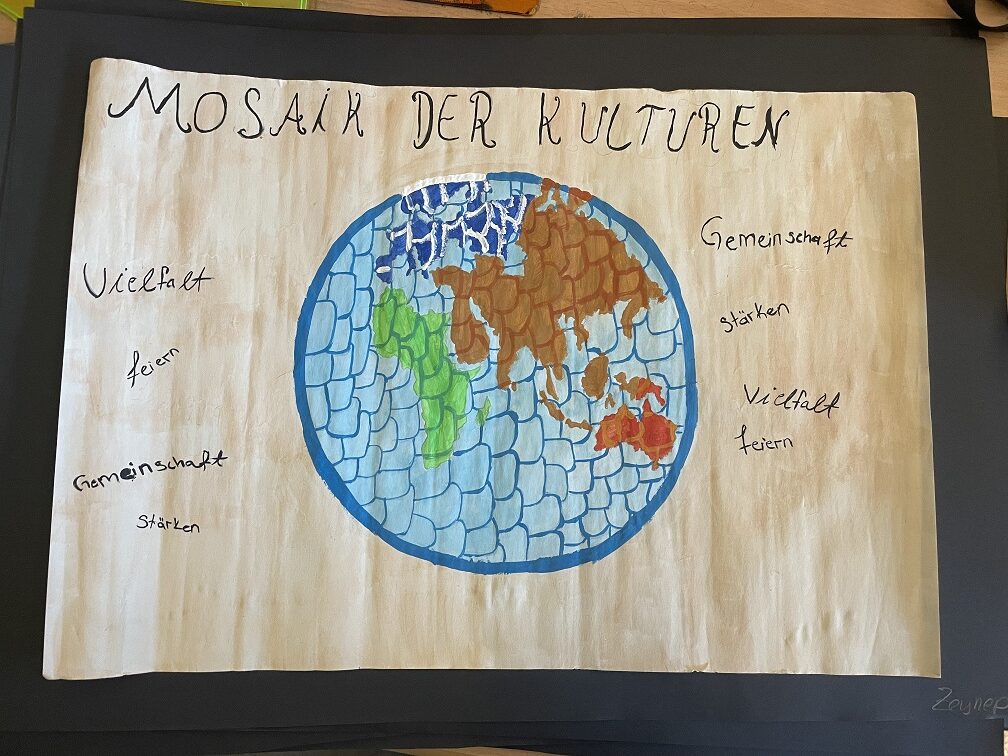 MOSAiK DER KULTUREN
Vielfalt
feiern
Gemeinschaft
Stärken
Gemeinschaft
stärken
Vielfalt
feiern
Zeynep